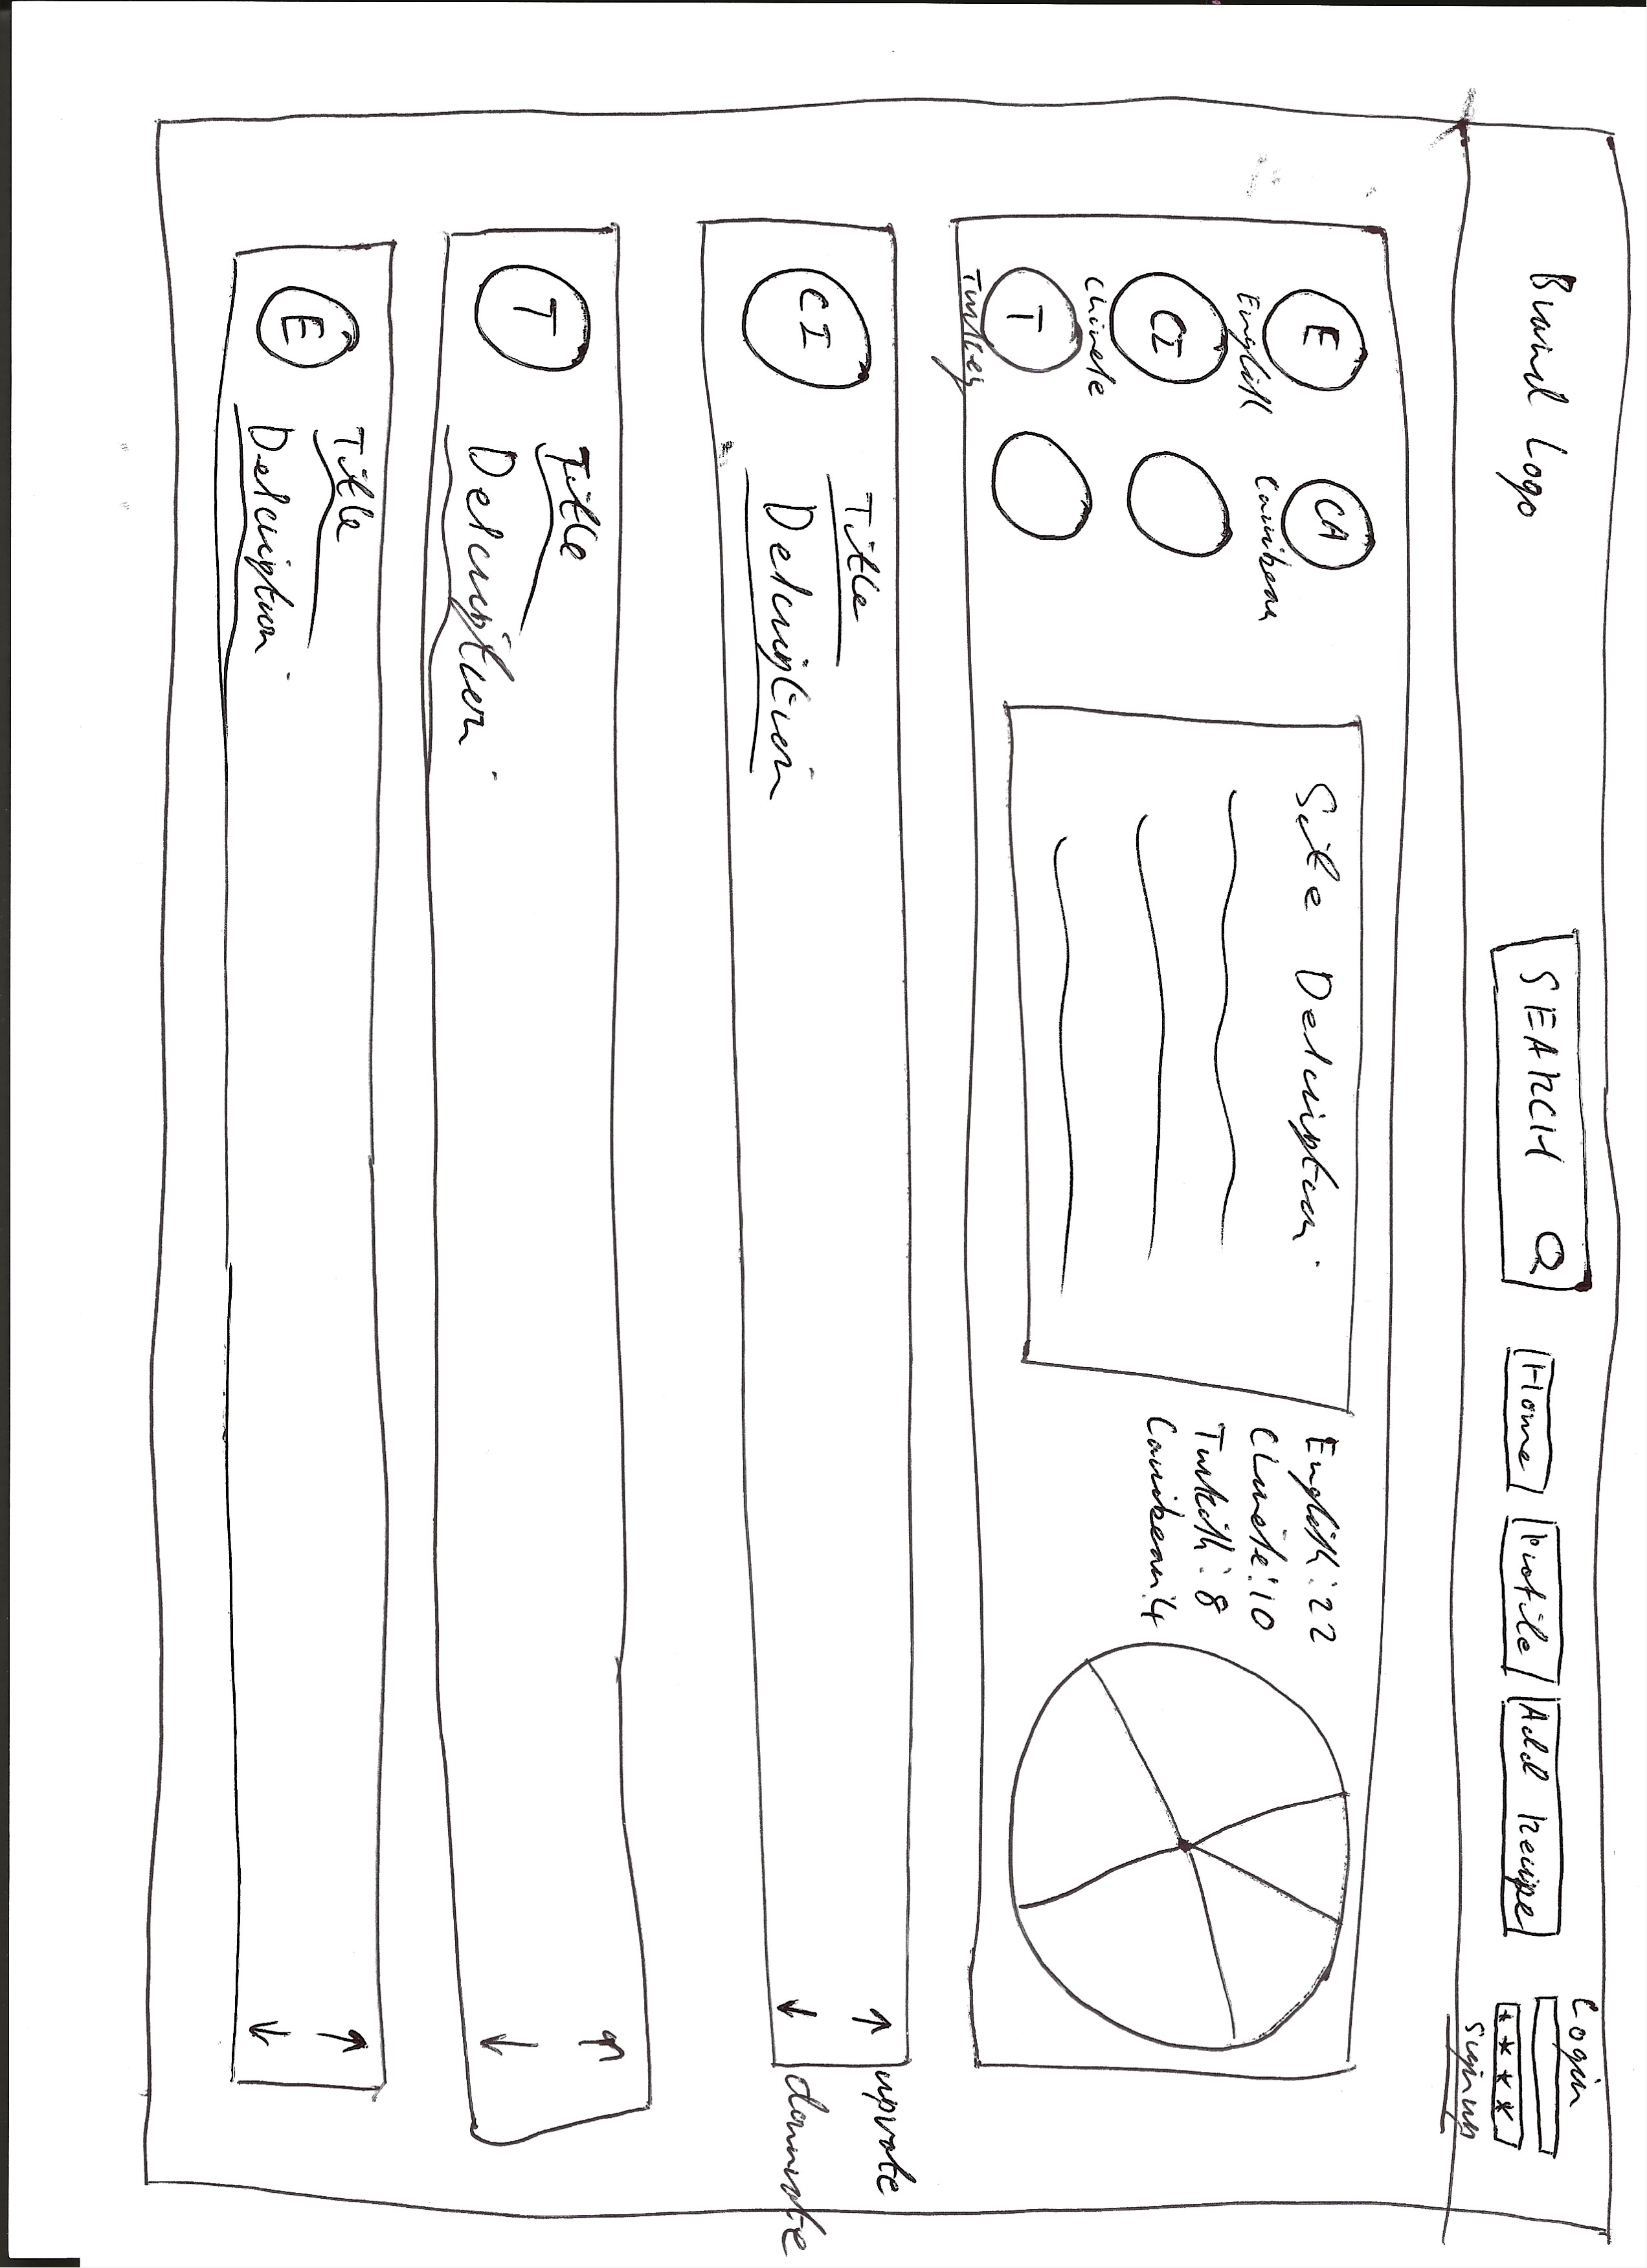 Brand Logo
SEARCH
Home
Profile
Add Recipe
Login
****
Sign up
E
English
CA
Carribean
CI
Chinese
T
Turkey
Site Description
English: 22
Chinese: 10
Turkish: 8
Carribean: 4
CI
Title
Description
upvote
downvote
T
Title
Description
E
Title
Description